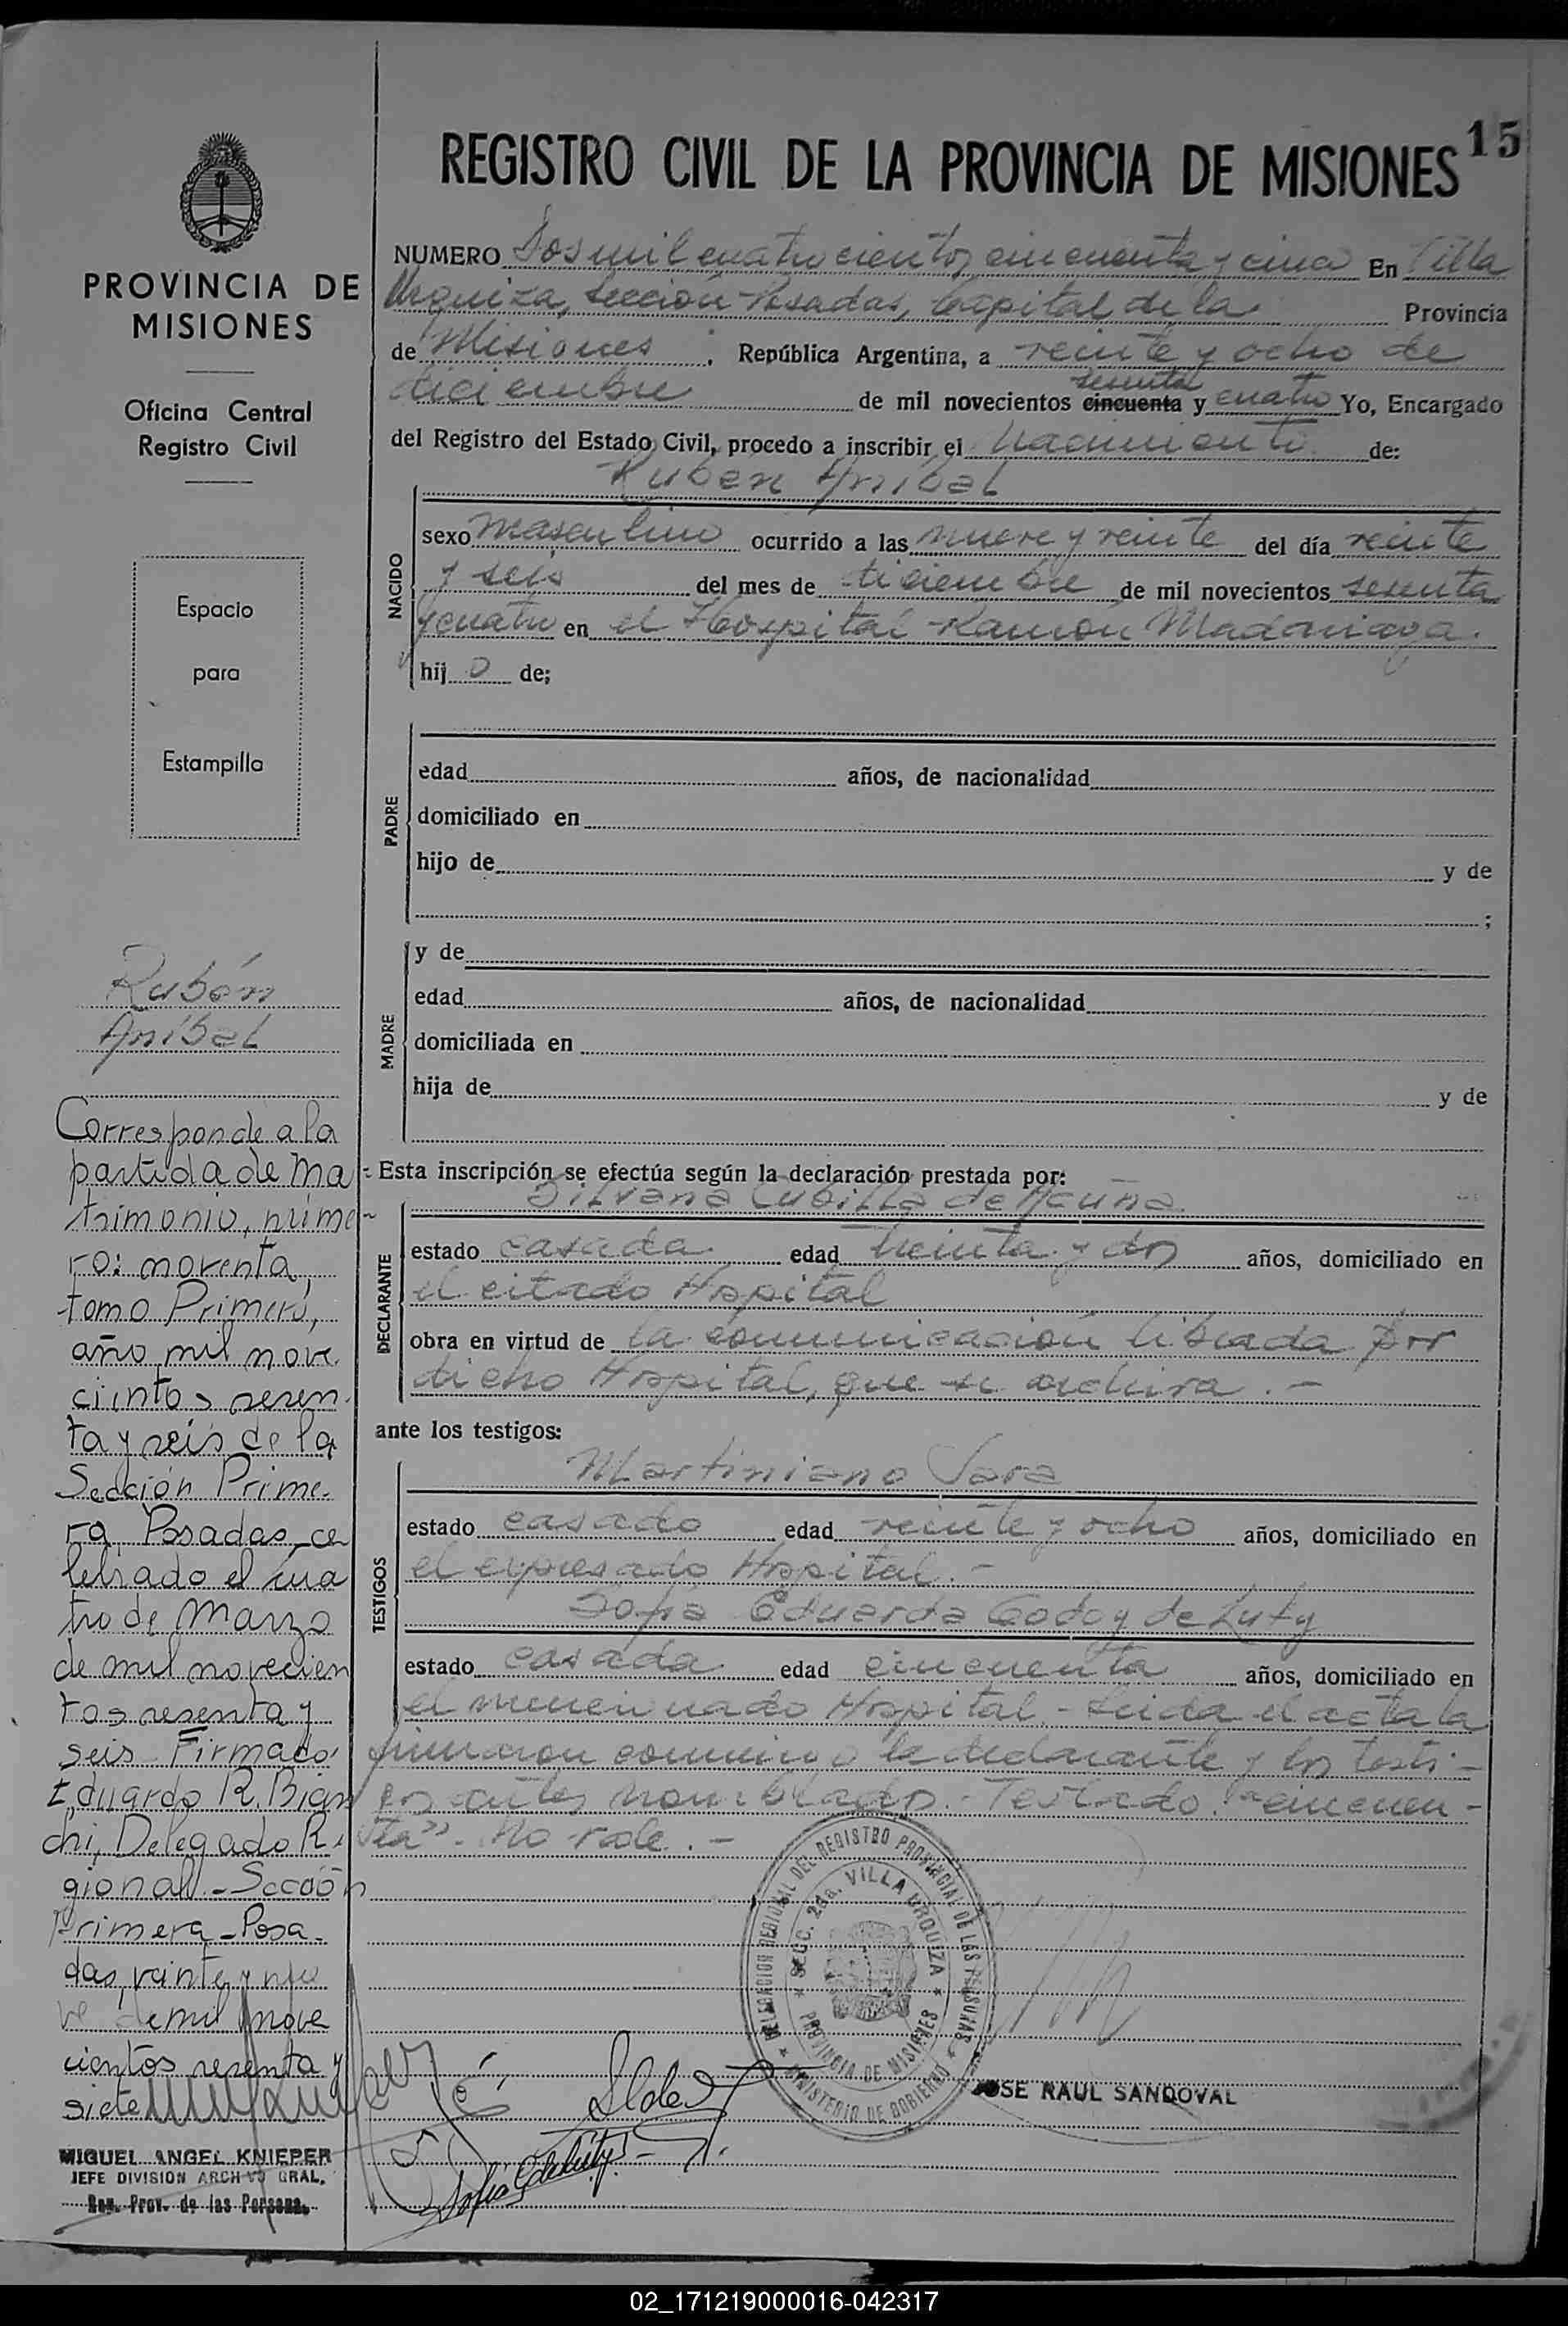 15
REGISTRO CIVIL DE LA PROVINCIA DE MISIONES
NUMERO Dos mil cuatrocientos cincuenta y cinco En Villa
Urquiza, Sección Posadas, Capital de la Provincia
de Misiones, República Argentina, a veinte y ocho de
sesenta
diciembre de mil novecientos cincuenta y cuatro Yo, Encargado
del Registro del Estado Civil, procedo a inscribir el nacimiento de:
NACIDO
Rubén Aníbal
sexo masculino ocurrido a las nueve y veinte del día veinte
y seis del mes de diciembre de mil novecientos sesenta
y cuatro en el Hospital Ramón Madariaga.
hij o de;
PADRE
edad años, de nacionalidad
domiciliado en
hijo de y de
;
MADRE
y de
edad años, de nacionalidad
domiciliada en
hija de y de
Esta inscripción se efectúa según la declaración prestada por:
DECLARANTE
Silvana Cubilla de Acuña
estado casada edad treinta y dos años, domiciliado en
el citado Hospital
obra en virtud de la comunicación librada por
dicho Hospital, que se archiva.-
ante los testigos:
TESTIGOS
Martiniano Jara
estado casado edad veinte y ocho años, domiciliado en
el expresado Hospital.-
Sofía Eduarda Godoy de Luty
estado casada edad cincuenta años, domiciliado en
el mencionado Hospital.- Leida el acta la
firmaron conmigo la declarante y los testi-
gos antes nombrados.- Testado: "cincuen-
ta". No vale.-
DELEGACION REGIONAL DEL REGISTRO PROVINCIAL DE LAS PERSONAS
SECC. 2da. VILLA URQUIZA
PROVINCIA DE MISIONES
MINISTERIO DE GOBIERNO
JOSE RAUL SANDOVAL
Sofía G de Luty
PROVINCIA DE
MISIONES
Oficina Central
Registro Civil
Espacio
para
Estampilla
Rubén
Aníbal
Corresponde a la
partida de Ma-
trimonio, núme-
ro: noventa,
tomo Primero,
año mil nove
cientos sesen-
ta y seis de la
Sección Prime-
ra Posadas, ce
lebrado el cua
tro de Marzo
de mil novecien
tos sesenta y
seis Firmado:
Eduardo R. Bian
chi, Delegado Re
gional.- Sección
Primera - Posa-
das, veinte y nue
ve de mil nove
cientos sesenta y
siete
MIGUEL ANGEL KNIEPER
JEFE DIVISION ARCHIVO GRAL.
Reg. Prov. de las Persona.
02_171219000016-042317